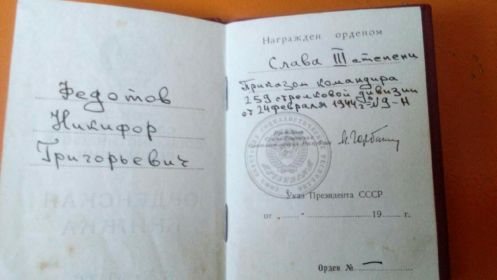 Федотов
Никифор
Григорьевич
Награжден орденом
Слава III степени
Приказом командира
259 стрелковой дивизии
от 24 февраля 1944 г №9-Н
М. Горбачев
Указ Президента СССР
от „ “ 19 г.
Орден № —